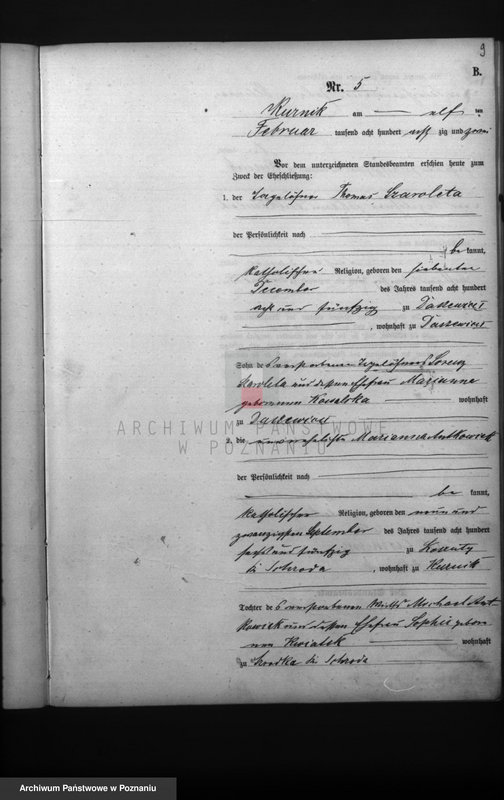 9
B.
Nr. 5
Kurnik am — elf ten
Februar tausend acht hundert acht zig und zwei
Vor dem unterzeichneten Standesbeamten erschien heute zum
Zweck der Eheschließung:
1. der Tagelöhner Thomas Szaroleta
der Persönlichkeit nach
be kannt,
katholischer Religion, geboren den siebenten
December des Jahres tausend acht hundert
acht und fünfzig zu Daszewice
, wohnhaft zu Daszewice
Sohn des verstorbenen Tagelöhners Lorenz
Szaroleta und dessen Ehefrau Marianna
geborenen Kowalska wohnhaft
zu Daszewice
2. die unverehelichte Marianna Antkowiak
der Persönlichkeit nach
be kannt,
katholischer Religion, geboren den neun und
zwanzigsten September des Jahres tausend acht hundert
sechs und fünfzig zu
bei Schroda, wohnhaft zu Kurnik
Tochter des verstorbenen Wirths Michael Ant
kowiak und dessen Ehefrau Sophie gebore
nen Kwiatek wohnhaft
zu bei Schroda
ARCHIWUM PAŃSTWOWE
W POZNANIU
Archiwum Państwowe w Poznaniu